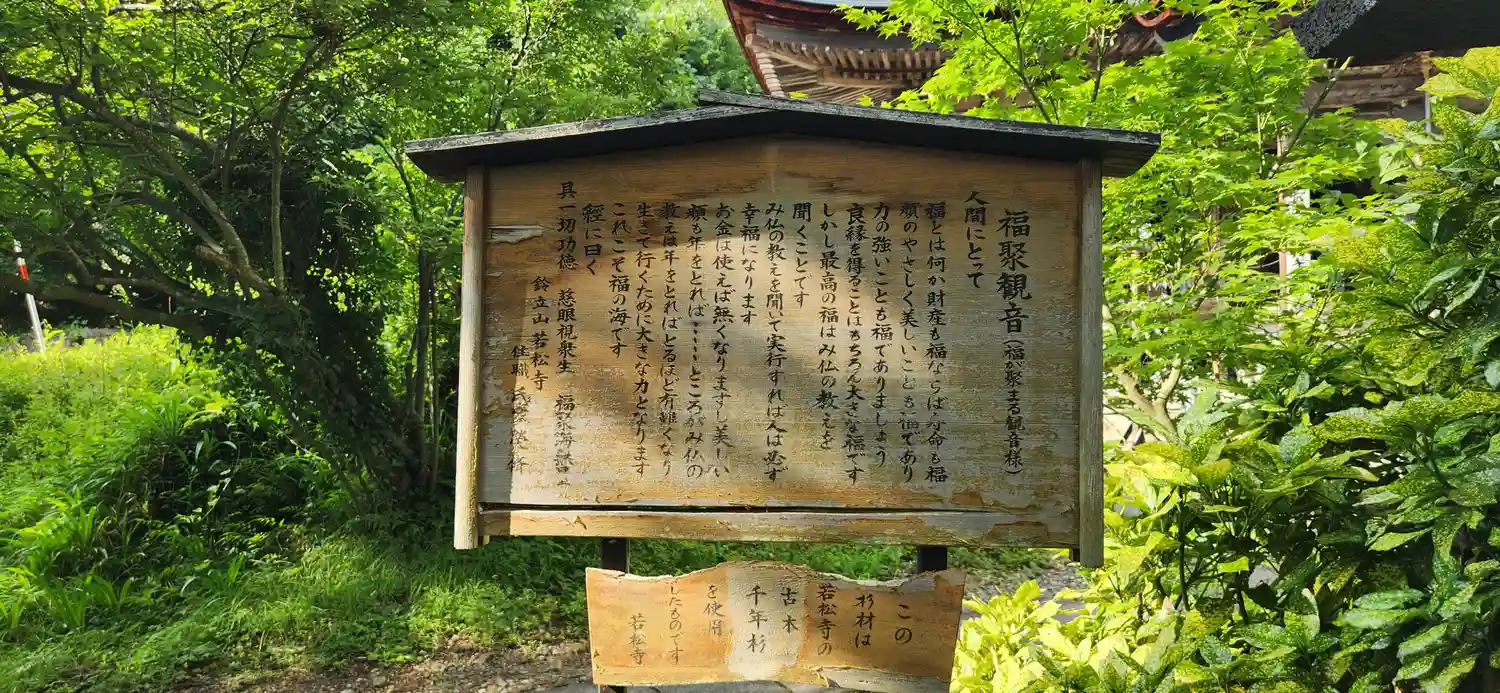 福聚観音（福が聚まる観音様）
人間にとって
福とは何か財産も福ならば寿命も福
顔のやさしく美しいことも福であり
力の強いことも福でありましょう
良縁を得ることはもちろん大きな福です
しかし最高の福はみ仏の教えを
聞くことです
み仏の教えを聞いて実行すれば人は必ず
幸福になります
お金は使えば無くなりますし美しい
顔も年をとれば……ところがみ仏の
教えは年をとればとるほど有難くなり
生きて行くために大きな力となります
これこそ福の海です
経に曰く
具一切功徳 慈眼視衆生 福聚海無量
鈴立山若松寺
住職 氏家榮脩
この
杉材は
若松寺の
古木
千年杉
を使用
したものです
若松寺